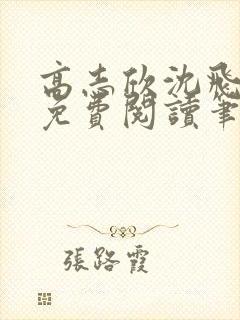 高志欣沈飛
免費閱讀筆
張路霞